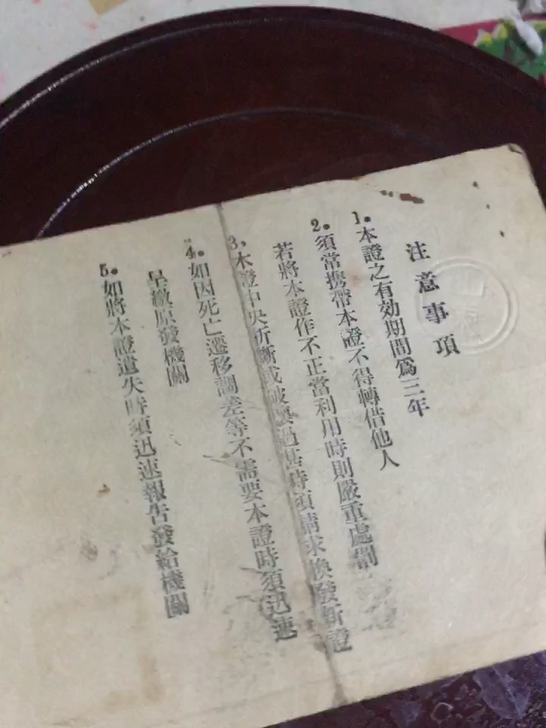 注意事項
1. 本證之有効期間爲三年
2. 須常携帶本證不得轉借他人
若將本證作不正當利用時則嚴重處罰
3, 本證中央折斷或破裂過甚時須請求換發新證
4. 如因死亡遷移調差等不需要本證時須迅速
呈繳原發機關
5. 如將本證遺失時須迅速報告發給機關